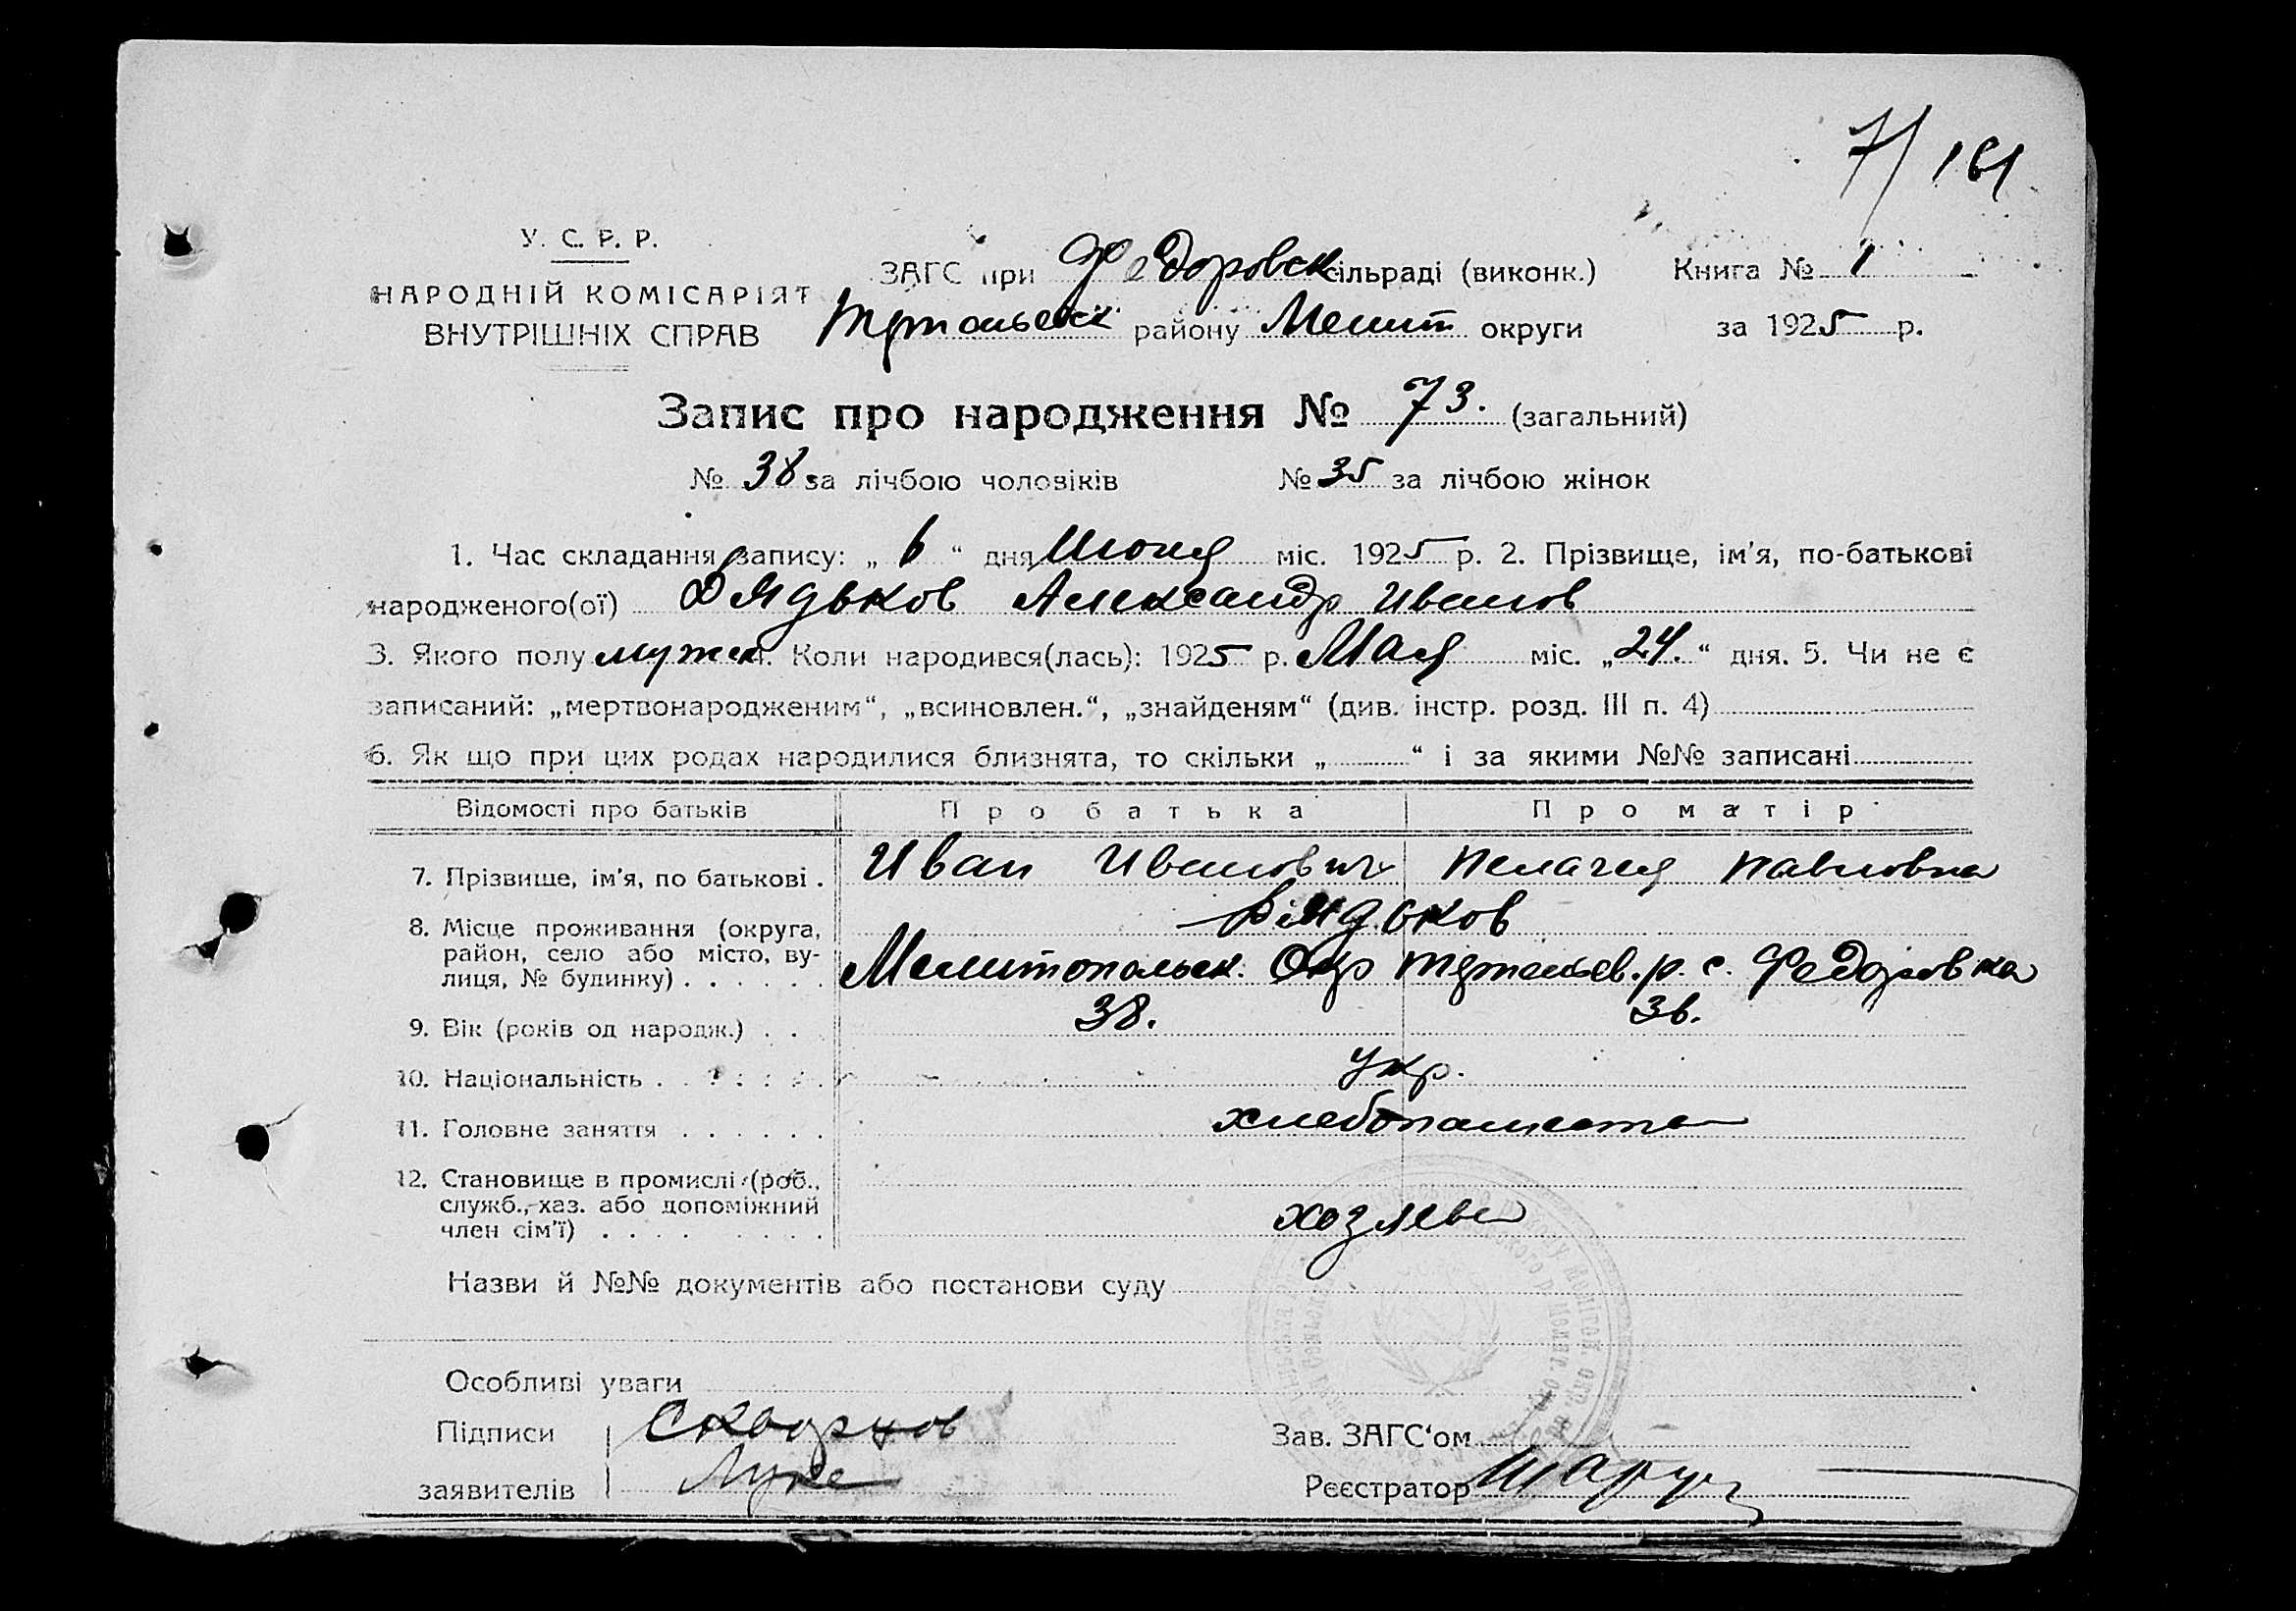 7/ 161
У. С. Р. Р.
НАРОДНІЙ КОМІСАРІЯТ
ВНУТРІШНІХ СПРАВ
ЗАГС при Федоровск сільраді (виконк.) Книга № 1
району Мелит округи за 1925 р.
Запис про народження № 73. (загальний)
№ 38 за лічбою чоловіків № 35 за лічбою жінок
1. Час складання запису: „ 6 “ дня Июня міс. 1925 р. 2. Прізвище, ім’я, по-батькові
народженого(ої) Дядьков Александр Иванов
3. Якого полу мужск. Коли народився(лась): 1925 р. Мая міс. „24.“ дня. 5. Чи не є
записаний: „мертвонародженим“, „всиновлен.“, „знайденям“ (див. інстр. розд. III п. 4)
6. Як що при цих родах народилися близнята, то скільки „ “ і за якими №№ записані
Відомості про батьків Про батька Про матір
7. Прізвище, ім’я, по батькові . Иван Иванович Пелагея Павловна
Дядьков
8. Місце проживання (округа,
район, село або місто, ву-
лиця, № будинку) . . . . . . Мелитопольск. Окр р. с. Федоровка
9. Вік (років од народж.) . . 38. 36.
10. Національність . . . . . . укр.
11. Головне заняття . . . . . . хлебопашеств
12. Становище в промислі (роб.,
служб., хаз. або допоміжний
член сім’ї) . . . . . . . . хозяева
Назви й №№ документів або постанови суду
Особливі уваги
Підписи Скворцов
заявителів
Зав. ЗАГС‘ом
Реєстратор